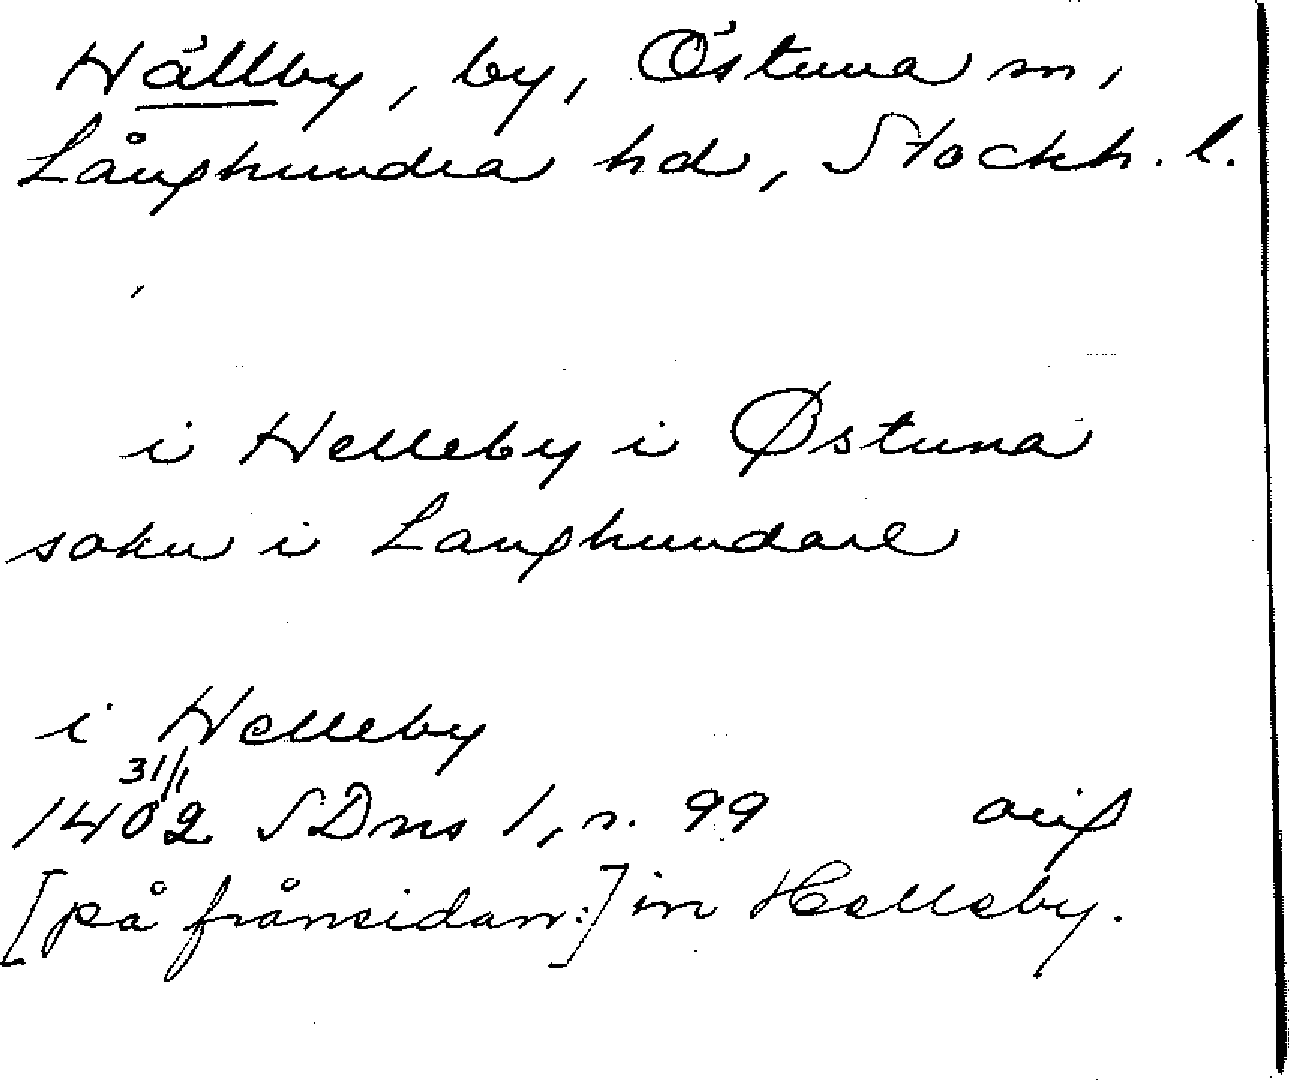 Hällby, by, Östuna sn,
Långhundra hd, Stockh. l.
i Helleby i Østuna
sokn i Langhundare
i Helleby
31/1
1402 SDns 1, s. 99 orig
[på frånsidan:] in Helleby.